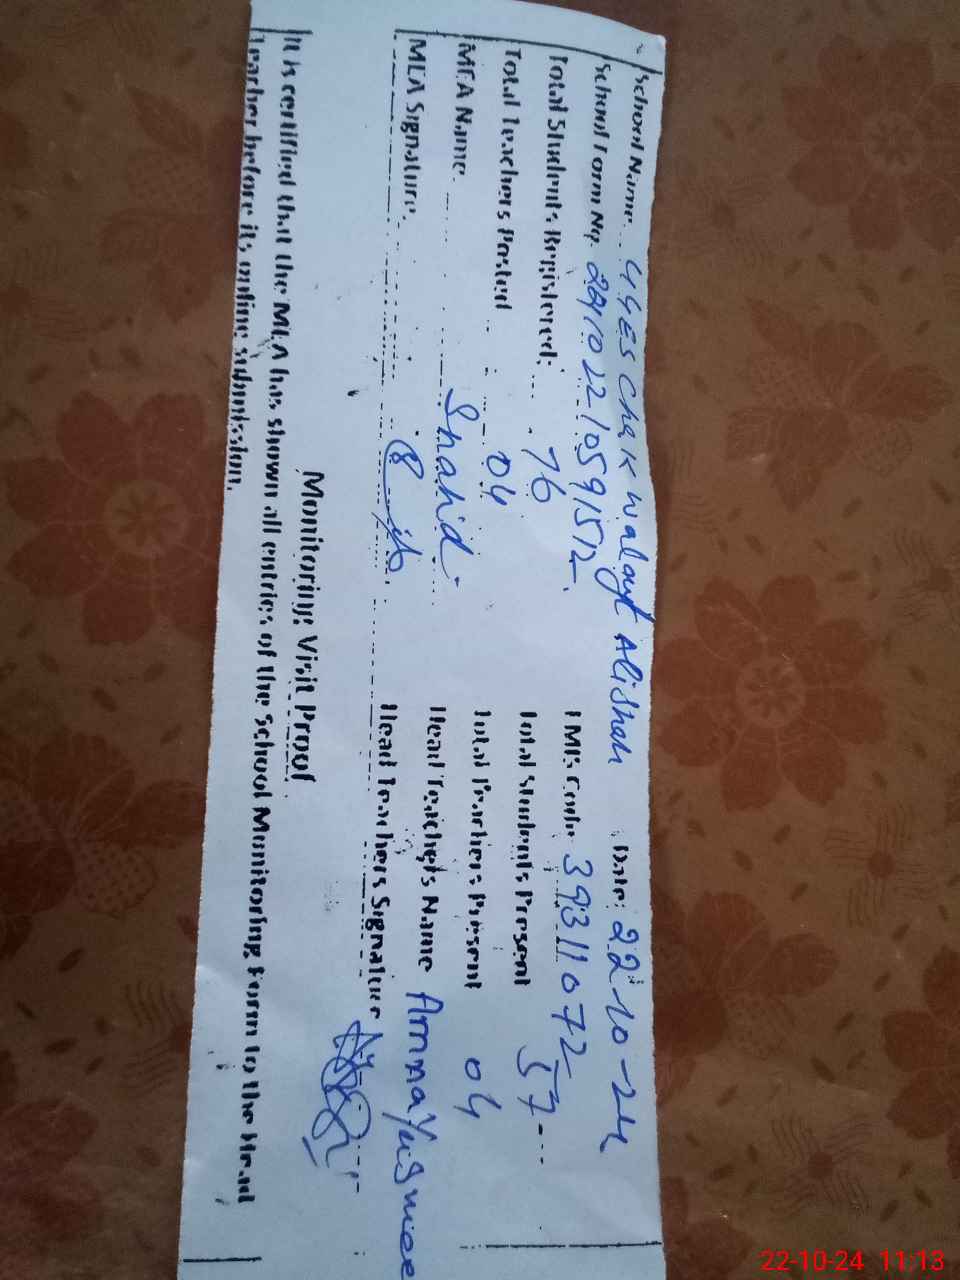 School Name GGES Chak Walayt Alishah Date: 22-10-24
School Form No. 22102210591512 EMIS Code 39311072
Total Students Registered: 76 Total Students Present 57
Total Teachers Posted 04 Total Teachers Present 04
MEA Name Shahid Head Teacher's Name Amma
MEA Signature Head Teachers Signature
Monitoring Visit Proof
It is certified that the MEA has shown all entries of the school Monitoring Form to the Head
Teacher before its online submission.
22-10-24 11:13